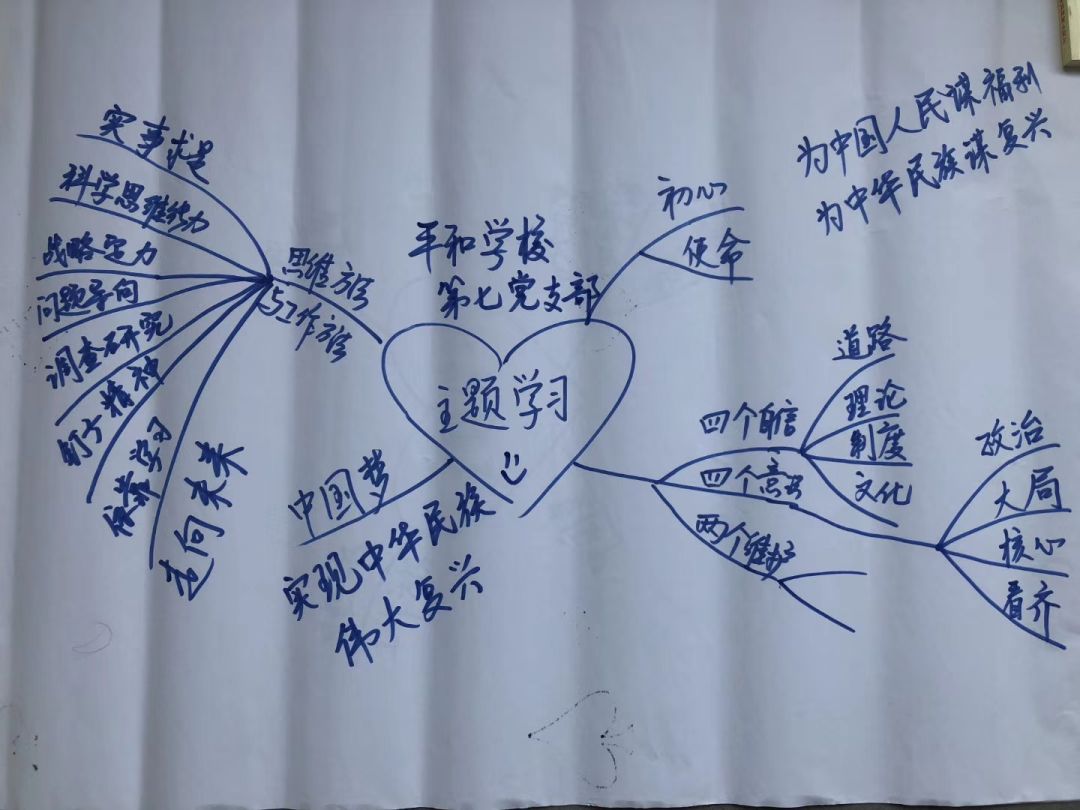 实事求是
科学思维能力
战略定力
问题导向
调查研究
钉子精神
走向未来
思维方法
与工作方法
平和学校
第七党支部
主题学习
中国梦
实现中华民族
伟大复兴
初心
使命
为中国人民谋福利
为中华民族谋复兴
四个自信
道路
理论
制度
文化
四个意识
政治
大局
核心
看齐
两个维护